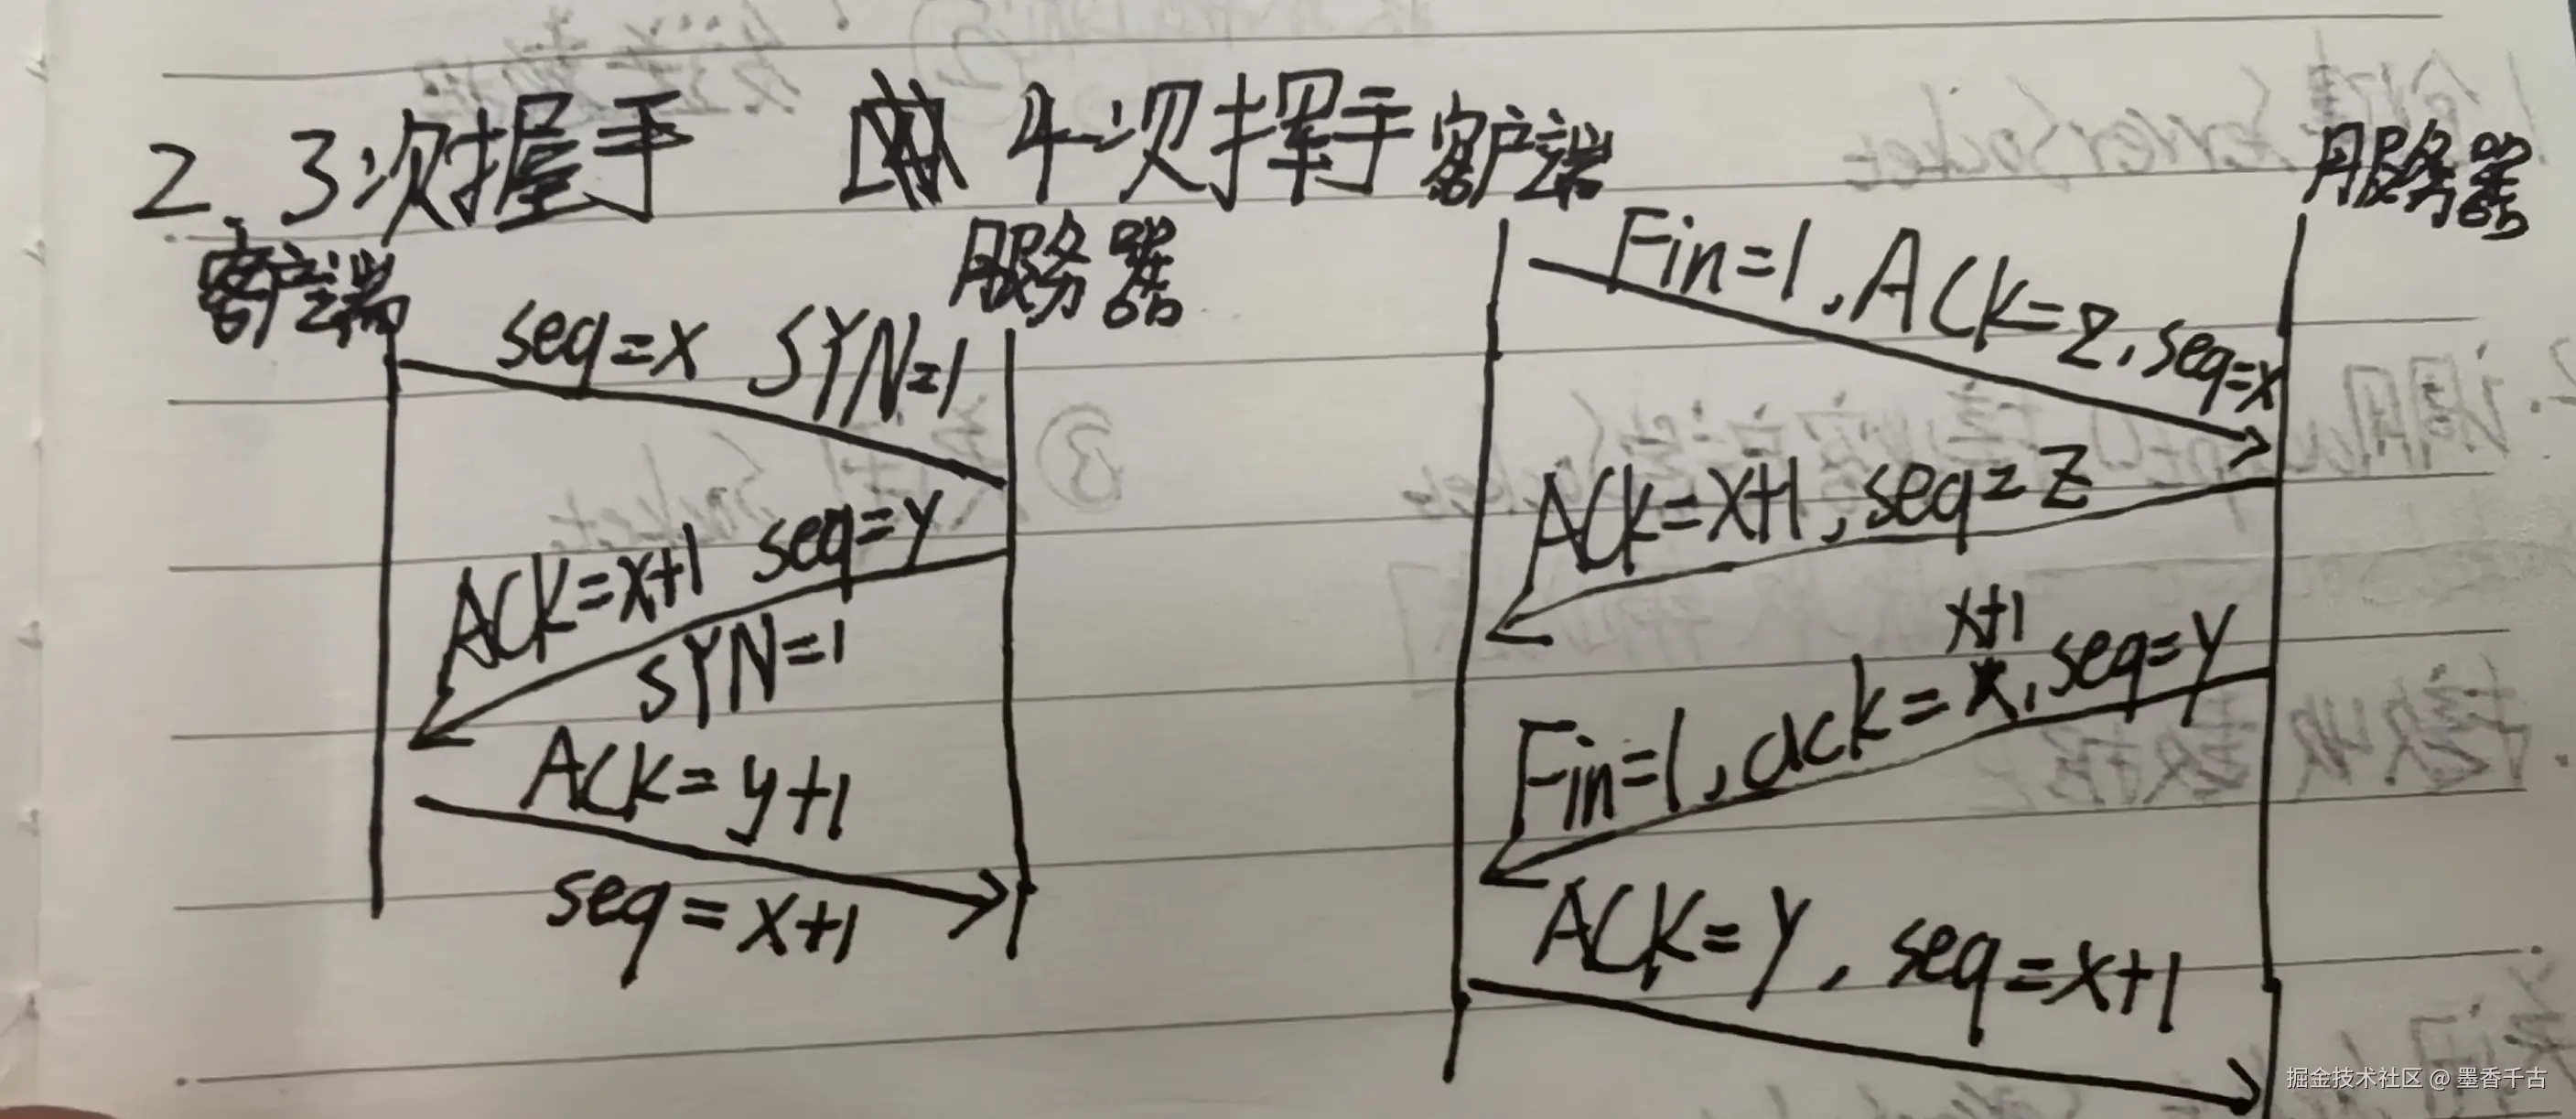 2. 3次握手 4次挥手
客户端 服务器
seq=x SYN=1
ACK=x+1 seq=y
SYN=1
ACK=y+1
seq=x+1
客户端 服务器
Fin=1, ACK=Z, seq=x
ACK=x+1, seq=Z
x+1
Fin=1, ack=x, seq=y
ACK=Y, seq=x+1
掘金技术社区 @ 墨香千古